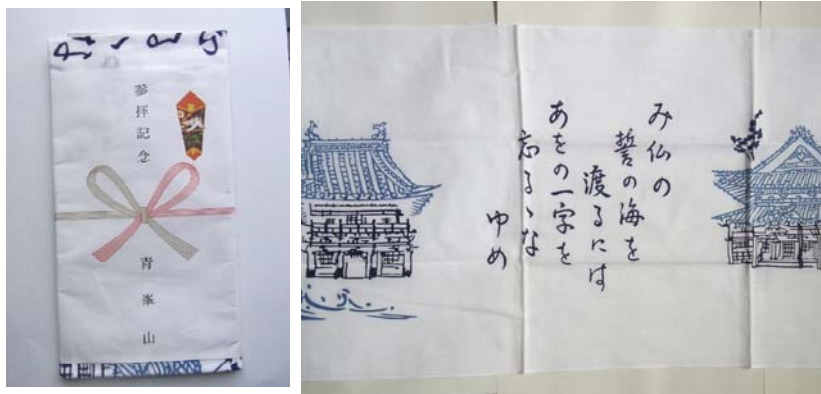 参拝記念
青峯山
み仏の
誓の海を
渡るには
あをの一字を
忘るゝな
ゆめ